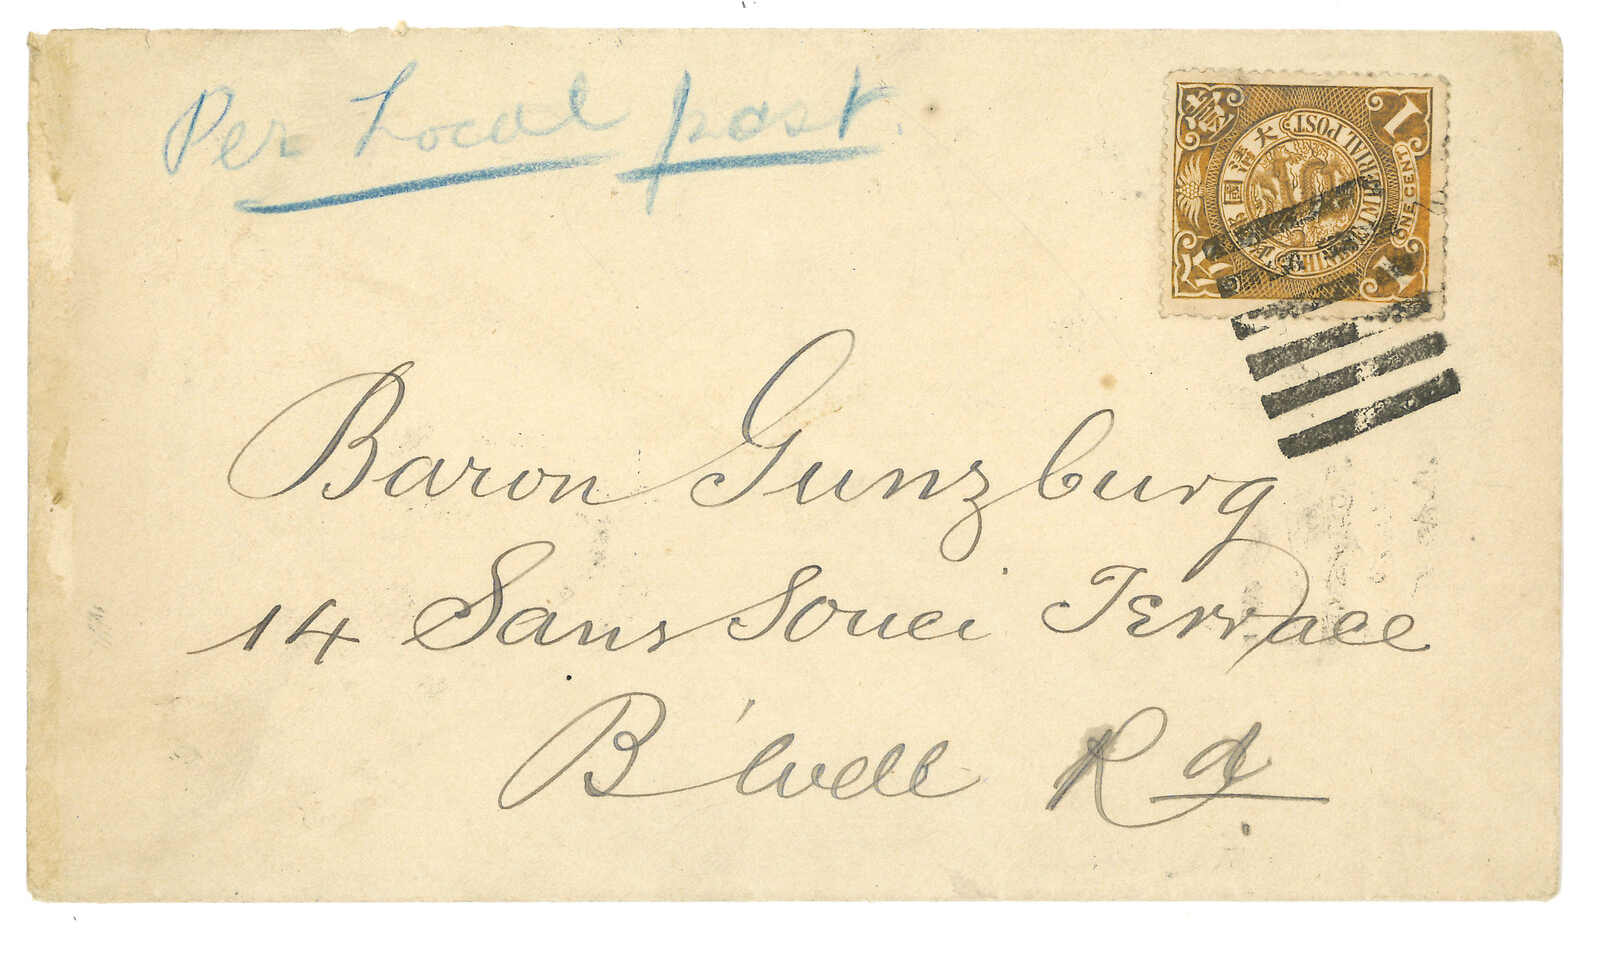 Per Local post.
大清國郵政
CHINESE IMPERIAL POST
壹
1
ONE CENT
1
Baron Gunzburg
14 Sans Souci Terrace
B'Well Rd